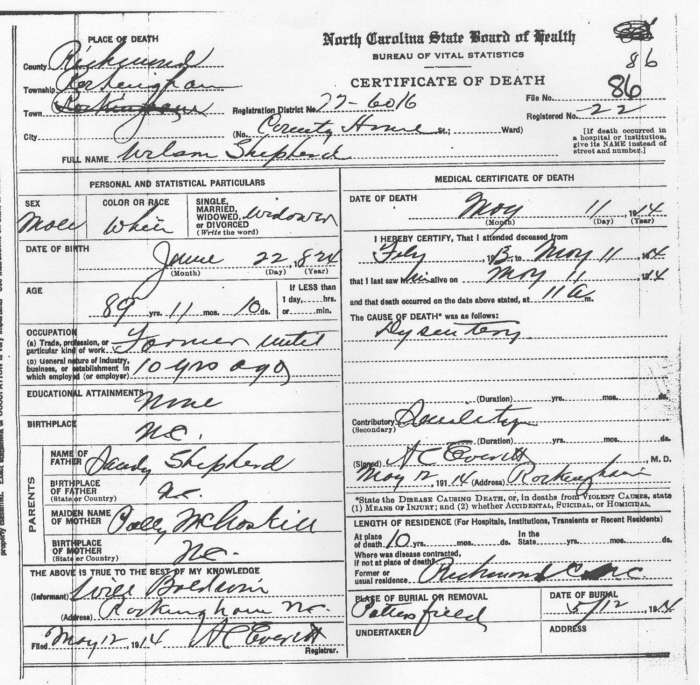 PLACE OF DEATH
County Richmond
Township Rockingham
Town Rockingham
City
North Carolina State Board of Health
BUREAU OF VITAL STATISTICS
CERTIFICATE OF DEATH
86
File No. 86
Registration District No. 77-6016 Registered No. 22
(No. County Home St.; Ward)
[If death occurred in a hospital or institution, give its NAME instead of street and number.]
FULL NAME Wilson Shepherd
PERSONAL AND STATISTICAL PARTICULARS
SEX
Male
COLOR OR RACE
White
SINGLE, MARRIED, WIDOWED, OR DIVORCED (Write the word)
Widower
DATE OF BIRTH
June 22, 1824
(Month) (Day) (Year)
AGE
89 yrs. 11 mos. 10 ds.
If LESS than 1 day, hrs. or min.
OCCUPATION
(a) Trade, profession, or particular kind of work Farmer until
(b) General nature of industry, business, or establishment in which employed (or employer) 10 yrs ago
EDUCATIONAL ATTAINMENTS None
BIRTHPLACE N.C.
PARENTS
NAME OF FATHER Shepherd
BIRTHPLACE OF FATHER (State or Country) N.C.
MAIDEN NAME OF MOTHER Polly
BIRTHPLACE OF MOTHER (State or Country) N.C.
THE ABOVE IS TRUE TO THE BEST OF MY KNOWLEDGE
(Informant) Will Baldwin
(Address) Rockingham N.C.
Filed May 12, 1914 N C Everett
Registrar.
MEDICAL CERTIFICATE OF DEATH
DATE OF DEATH
May 11, 1914
(Month) (Day) (Year)
I HEREBY CERTIFY, That I attended deceased from
Feby 1913, to May 11 1914
that I last saw him alive on May 11 1914
and that death occurred on the date above stated, at 11 a m.
The CAUSE OF DEATH* was as follows:
Dysentery
(Duration) yrs. mos. ds.
Contributory (Secondary)
(Duration) yrs. mos. ds.
(Signed) N C Everett, M. D.
May 12 1914 (Address) Rockingham
*State the DISEASE CAUSING DEATH, or, in deaths from VIOLENT CAUSES, state
(1) MEANS OF INJURY; and (2) whether ACCIDENTAL, SUICIDAL, or HOMICIDAL.
LENGTH OF RESIDENCE (For Hospitals, Institutions, Transients or Recent Residents)
At place of death 10 yrs. mos. ds. In the State yrs. mos. ds.
Where was disease contracted, if not at place of death?
Former or usual residence Richmond Co NC
PLACE OF BURIAL OR REMOVAL
Potters field
DATE OF BURIAL
5/12, 1914
UNDERTAKER
ADDRESS